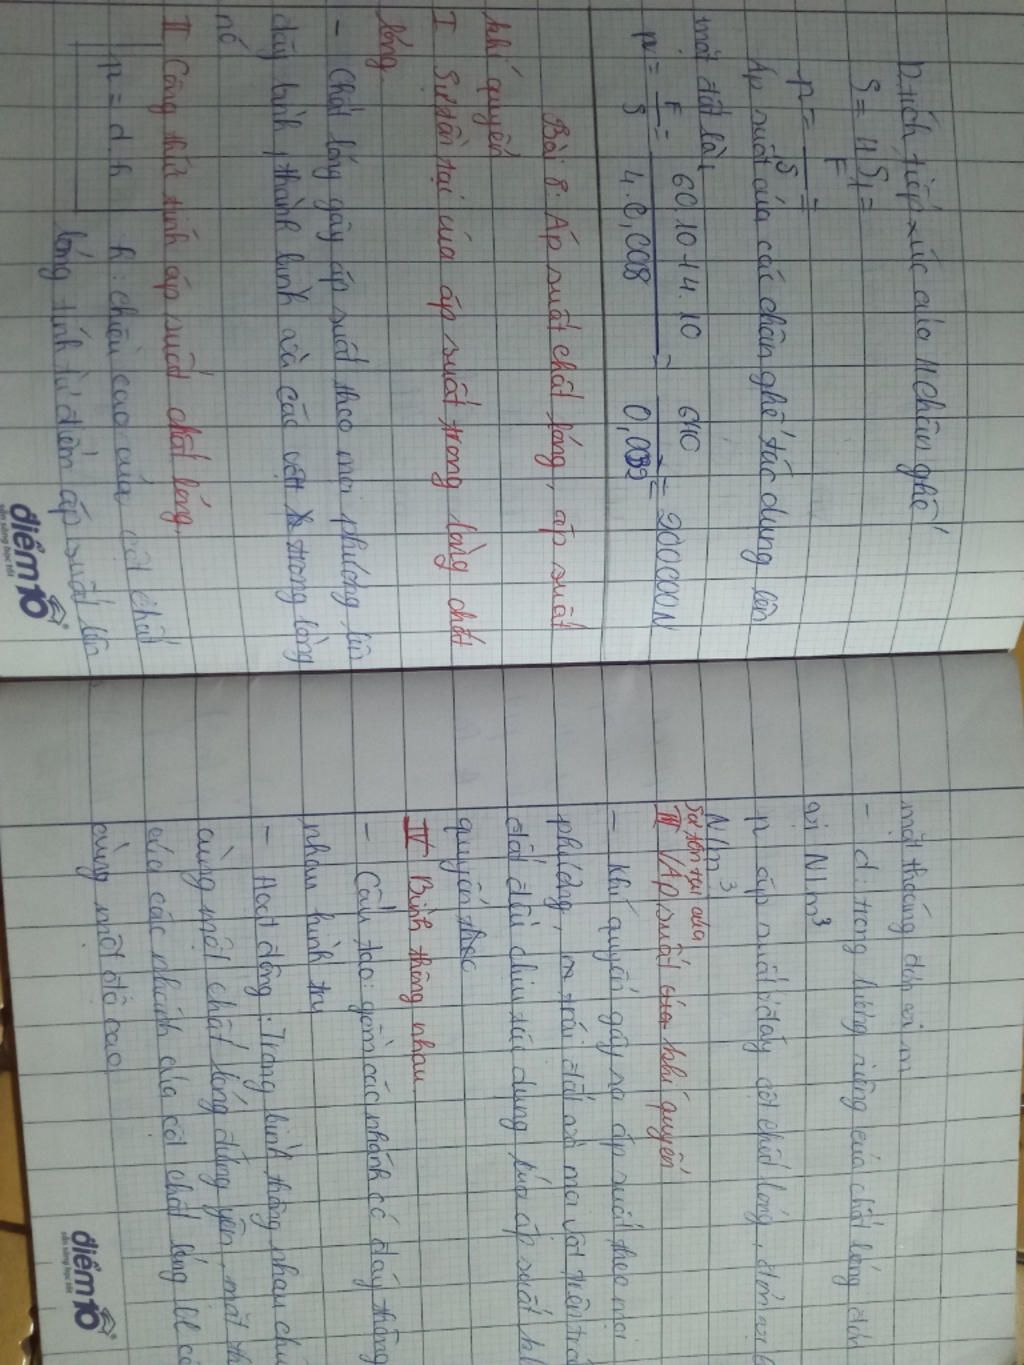 Diện tích tiếp xúc của 4 chân ghế
S = 4 S1 =
p = F/S =
Áp suất của các chân ghế tác dụng lên
mặt đất là:
p = F/S = 60.10+4.10/4.0,008 = 640/0,032 = 20000N
Bài 8: Áp suất chất lỏng, áp suất
khí quyển
I Sự tồn tại của áp suất trong lòng chất
lỏng
- Chất lỏng gây áp suất theo mọi phương lên
đáy bình, thành bình và các vật ở trong lòng
nó
II Công thức tính áp suất chất lỏng
p = d.h h: chiều cao của cột chất
lỏng tính từ điểm áp suất lên
mặt thoáng đơn vị m
- d: trong lượng riêng của chất lỏng đơn
vị N/m³
p áp suất ở đáy cột chất lỏng, đơn vị
N/m³
Sự tồn tại của
III Áp suất của khí quyển
- Khí quyển gây ra áp suất theo mọi
phương, trái đất và mọi vật trên
đất đều chịu tác dụng của áp suất
quyển theo
IV Bình thông nhau
- Cấu tạo: gồm các nhánh có đáy thông
nhau hình trụ
- Hoạt động: Trong bình thông nhau
cùng một chất lỏng đứng yên, mặt
của các nhánh của cột chất lỏng
cùng một độ cao
điểm10
sẵn sàng học tốt
điểm10
sẵn sàng học tốt